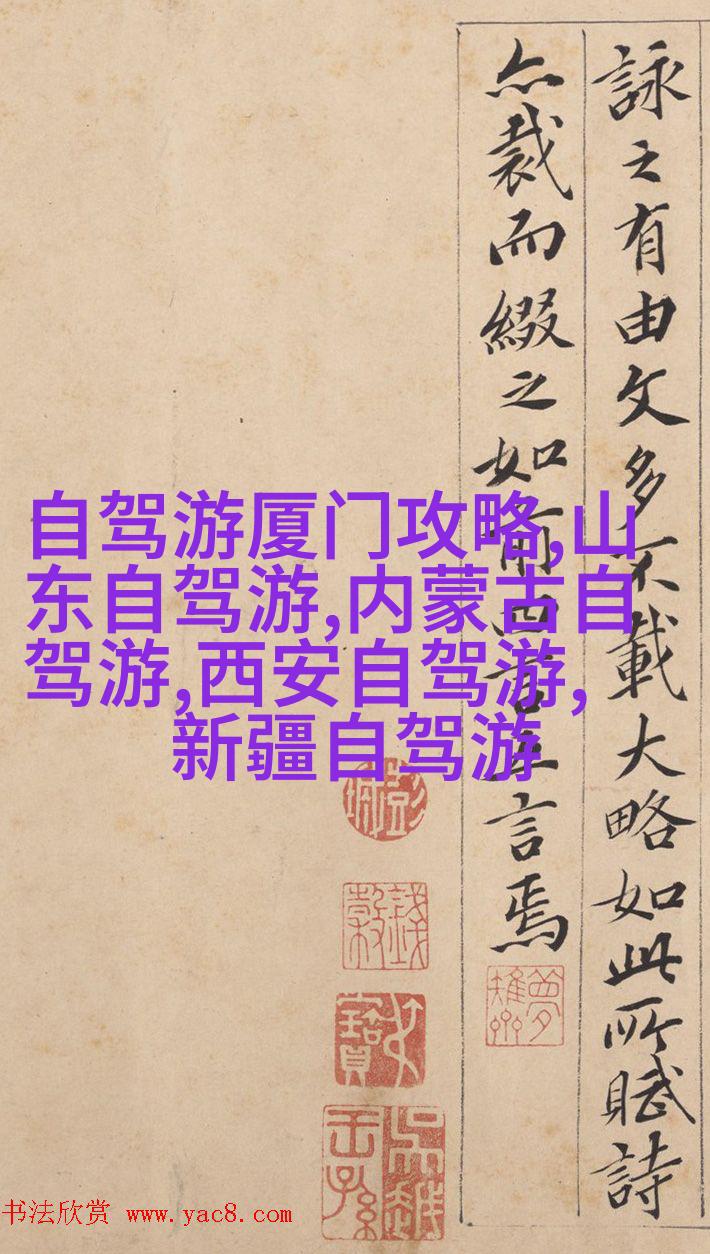 詠之有由文多不載大略如此所賦詩
亦裁而綴之如前四言五言焉
自驾游厦门攻略,山
东自驾游,内蒙古自
驾游,西安自驾游,
新疆自驾游
书法欣赏 www.yac8.com